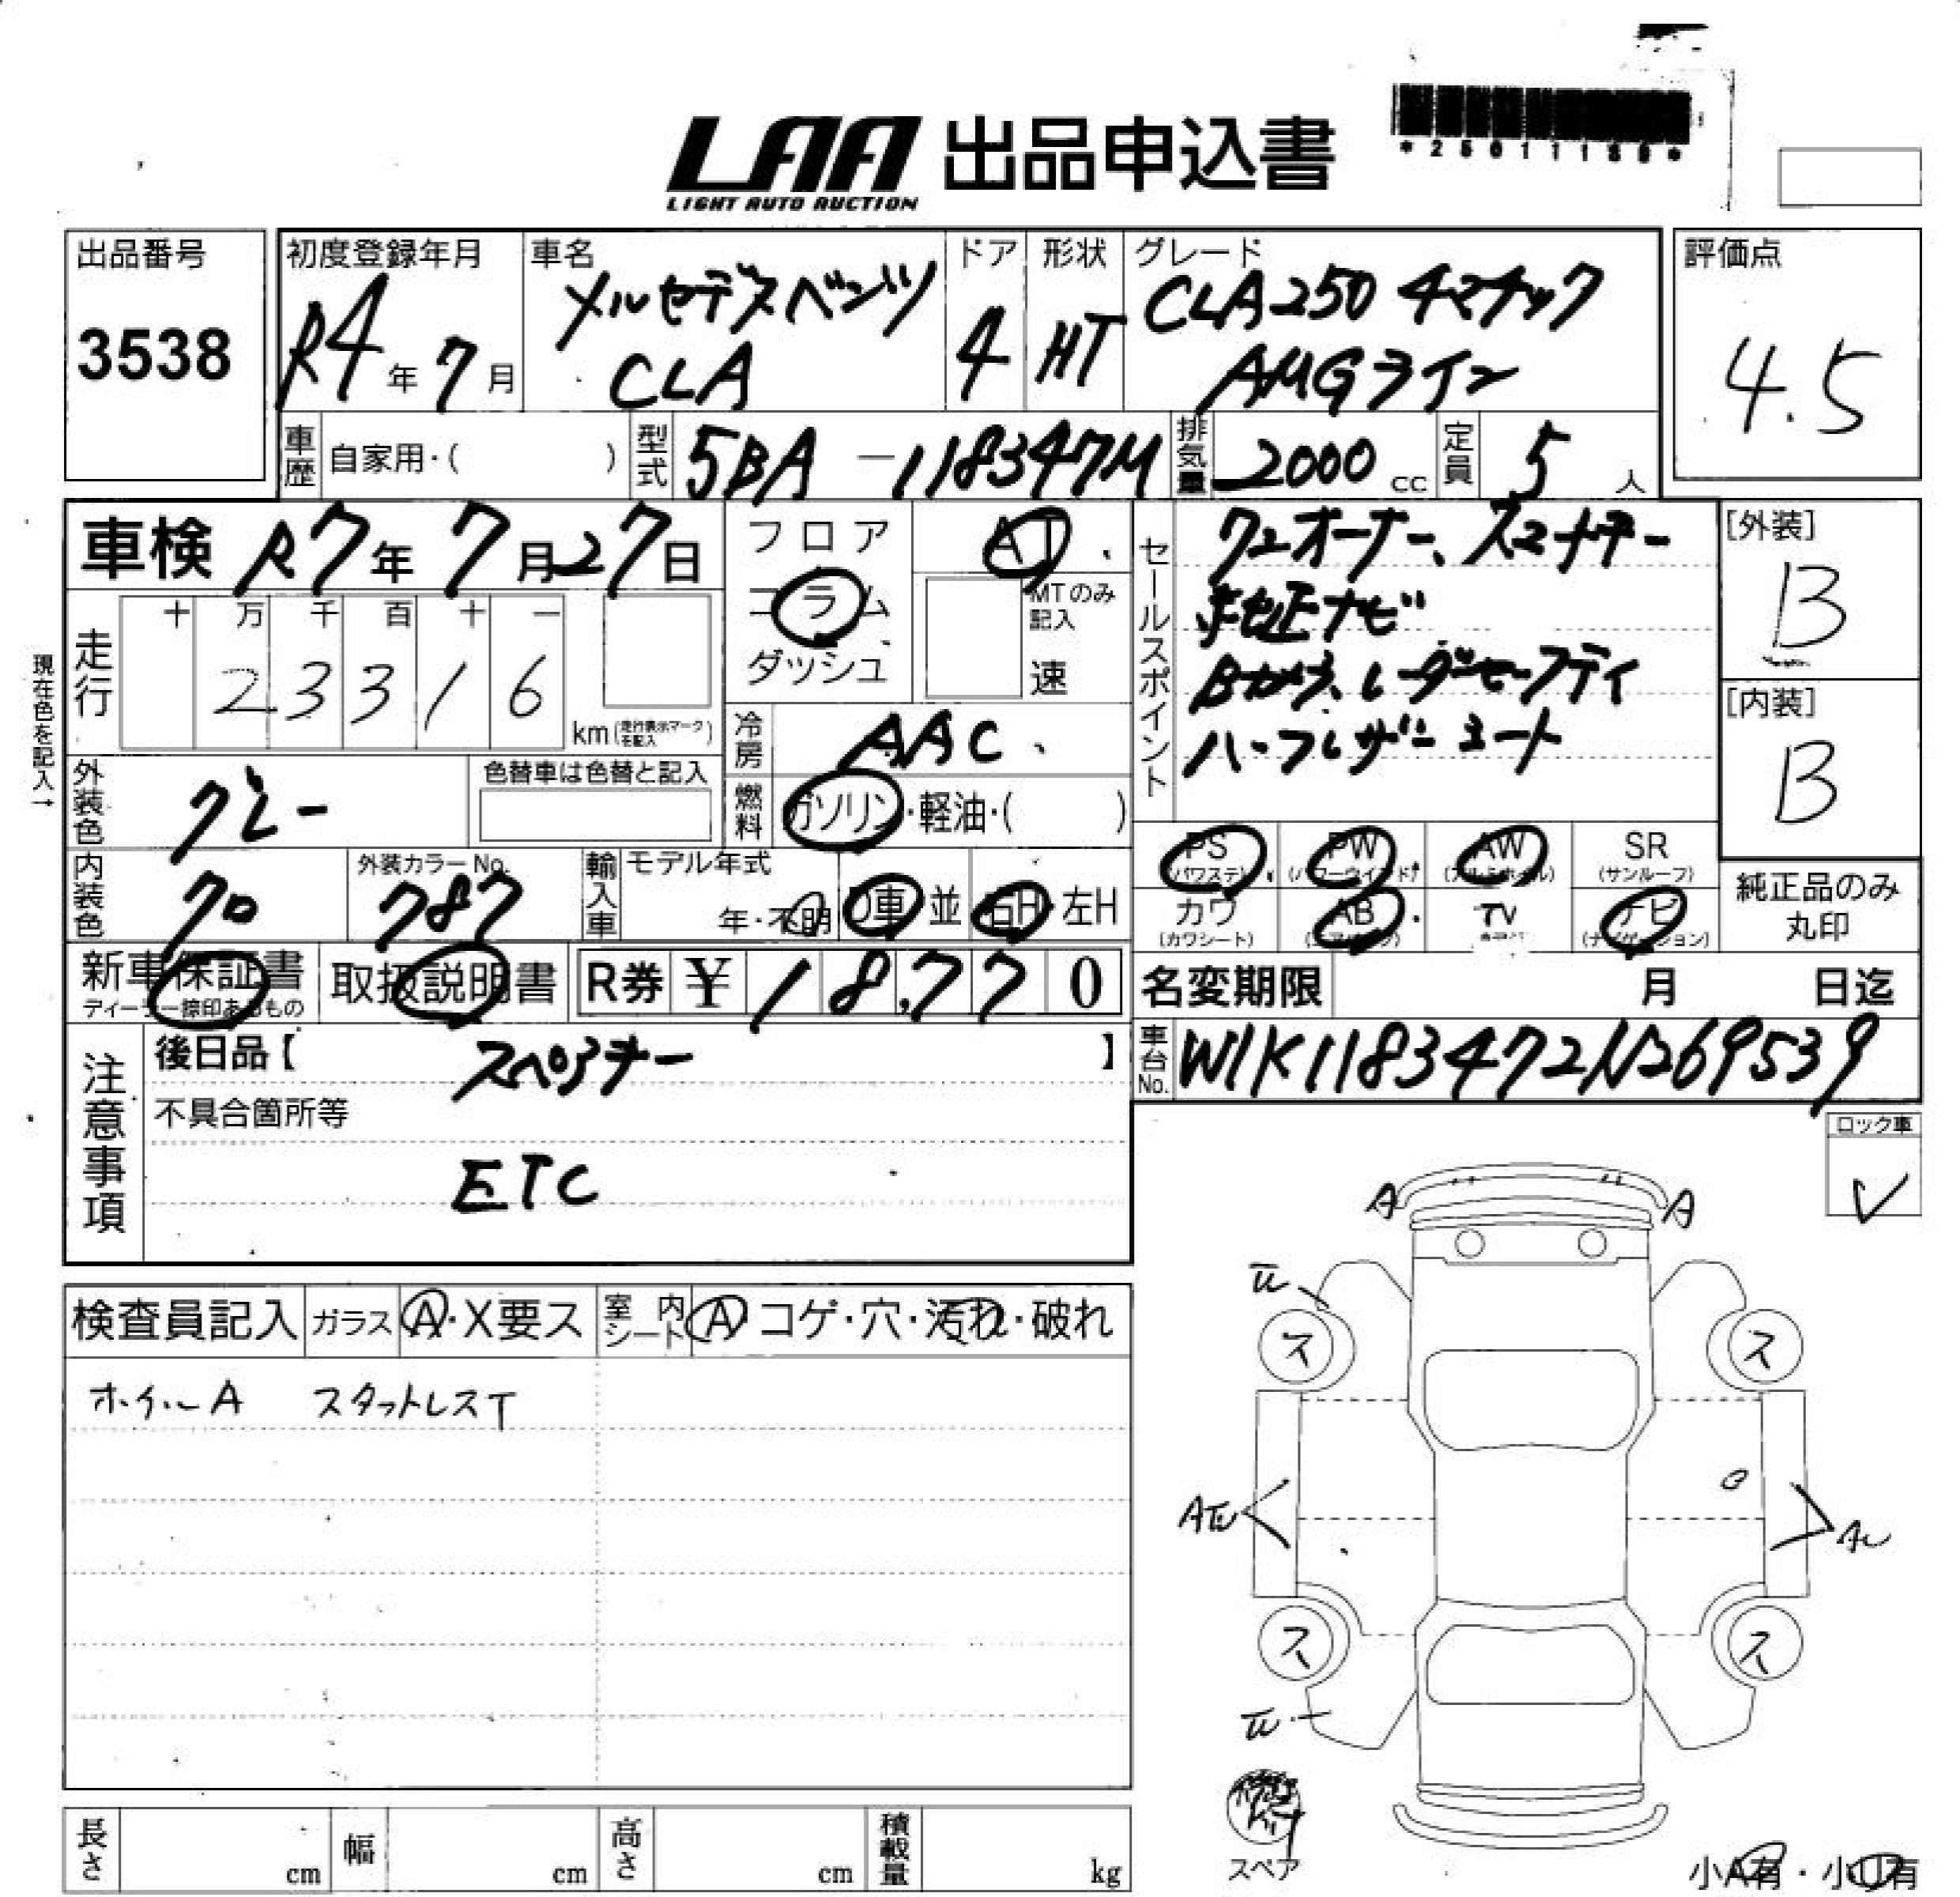 LAA 出品申込書
LIGHT AUTO AUCTION
出品番号
3538
初度登録年月
R4年7月
車名
メルセデスベンツ
CLA
ドア
4
形状
HT
グレード
CLA250 4マチック
AMGライン
評価点
4.5
車歴 自家用・( )
型式 5BA-118347M
排気量 2000 cc
定員 5 人
車検 R7年7月27日
フロア
コラム
ダッシュ
AT
MTのみ記入
速
セールスポイント
ワンオーナー、スマートキー
純正ナビ
Bカメラ、レーダーセーフティ
ハーフレザーシート
[外装]
B
[内装]
B
現在色を記入→
走行
十 万 千 百 十 一
2 3 3 1 6
km(走行表示マークを記入)
冷房 AAC
燃料 ガソリン・軽油・( )
外装色 グレー
色替車は色替と記入
内装色 クロ
外装カラーNo.
787
輸入車 モデル年式
年・不明 D車 並 右H 左H
PS (パワステ)
PW (パワーウインド)
AW (アルミホイル)
SR (サンルーフ)
カワ (カワシート)
AB (エアバッグ)
TV
ナビ (ナビゲーション)
純正品のみ丸印
新車保証書
ディーラー捺印あるもの
取扱説明書
R券 ¥ 18,770
名変期限 月 日迄
注意事項
後日品【 スペアキー 】
不具合箇所等
ETC
車台No. W1K1183472N269539
ロック車
✓
検査員記入 ガラス A・X要ス
室内シート A コゲ・穴・汚れ・破れ
ホイールA スタットレスT
A A
ス ス
ス ス
スペア
小A有・小U有
長さ cm 幅 cm 高さ cm 積載量 kg